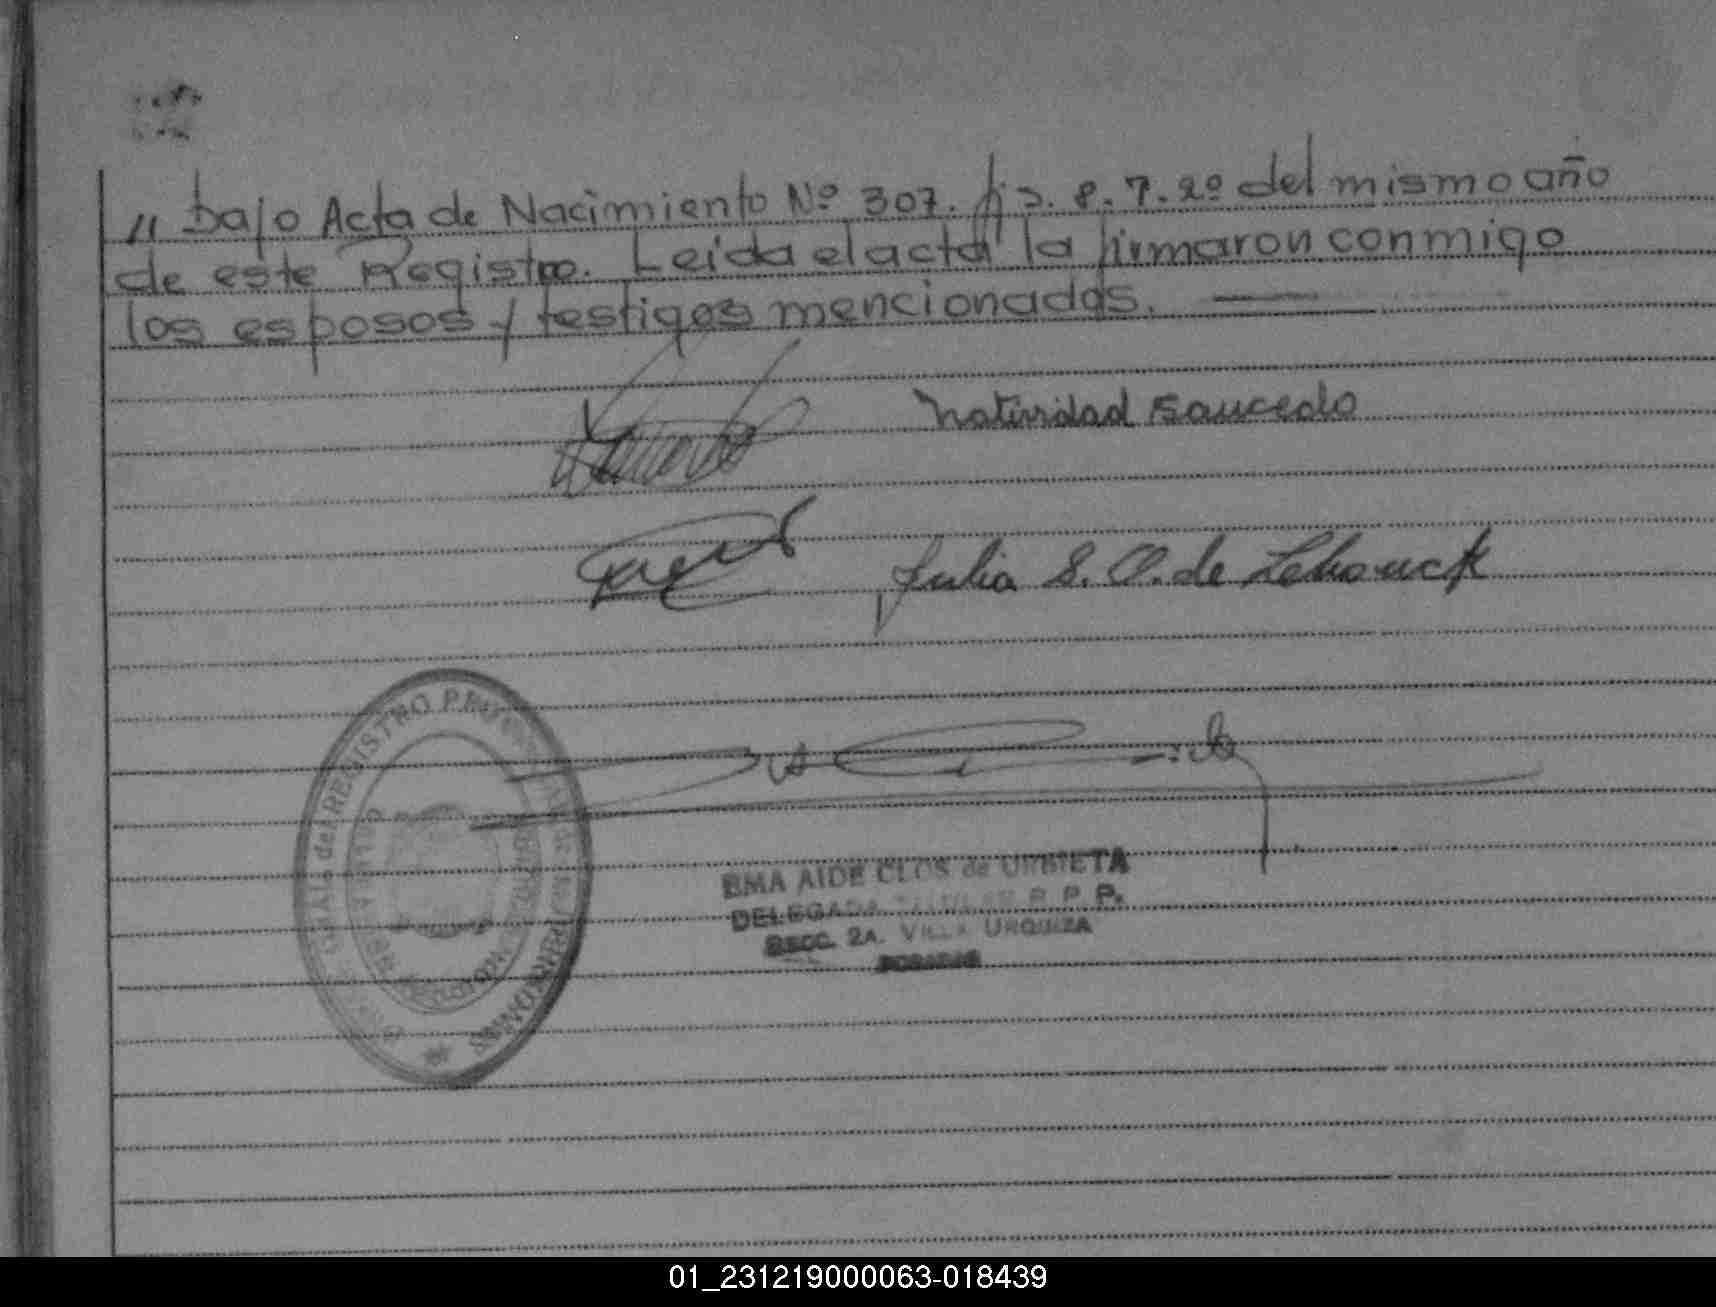 " bajo Acta de Nacimiento Nº 307. fjs. 8. 7. 2º del mismo año
de este Registro. Leida el acta la firmaron conmigo
los esposos y testigos mencionados.
Natividad Saucedo
Julia S. O. de Lehouck
GRAL. del REGISTRO PROVINCIAL DE LAS PERSONAS
EMA AIDE CLOS de URBIETA
DELEGADA R. P. P.
SECC. 2A. VILLA URQUIZA
POSADAS
01_231219000063-018439